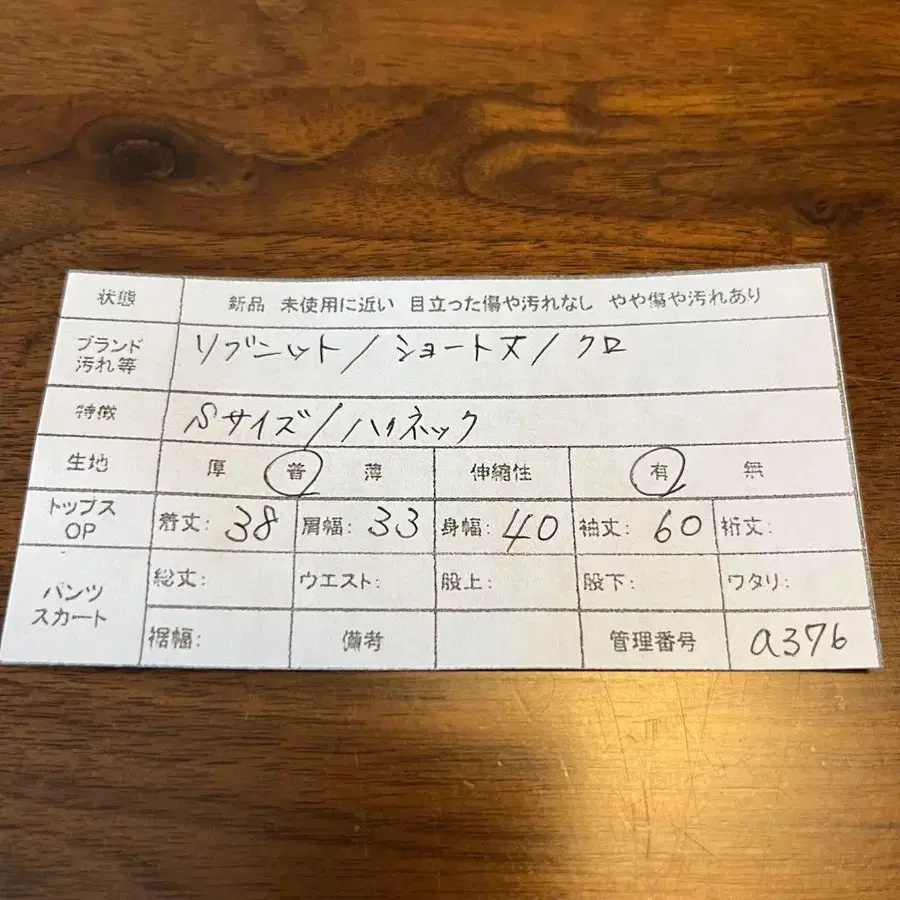 状態 新品 未使用に近い 目立った傷や汚れなし やや傷や汚れあり
ブランド 汚れ等 リブニット/ショート丈/クロ
特徴 Sサイズ/ハイネック
生地 厚 普 薄 伸縮性 有 無
トップス OP 着丈: 38 肩幅: 33 身幅: 40 袖丈: 60 裄丈:
パンツ スカート 総丈: ウエスト: 股上: 股下: ワタリ:
裾幅: 備考 管理番号 a376